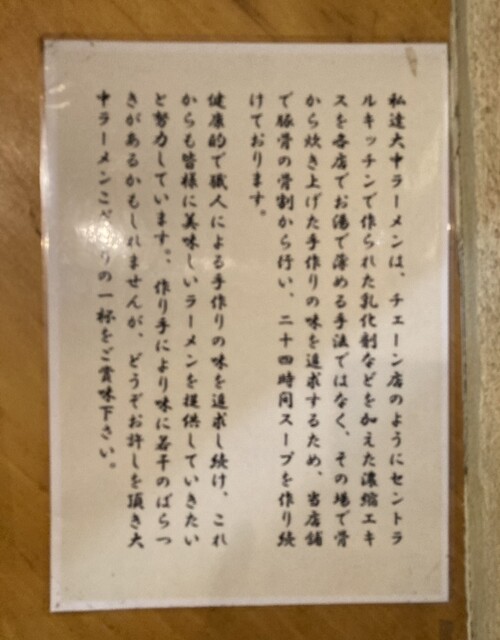 私達大中ラーメンは、チェーン店のようにセントラ
ルキッチンで作られた乳化剤などを加えた濃縮エキ
スを各店でお湯で薄める手法ではなく、その場で骨
から炊き上げた手作りの味を追求するため、当店舗
で豚骨の骨割から行い、二十四時间スープを作り続
けております。
健康的で職人による手作りの味を追求し続け、これ
からも皆様に美味しいラーメンを提供していきたい
と努力しています。、作り手により味に若干のばらつ
きがあるかもしれませんが、どうぞお許しを頂き大
中ラーメンこだわりの一杯をご賞味下さい。